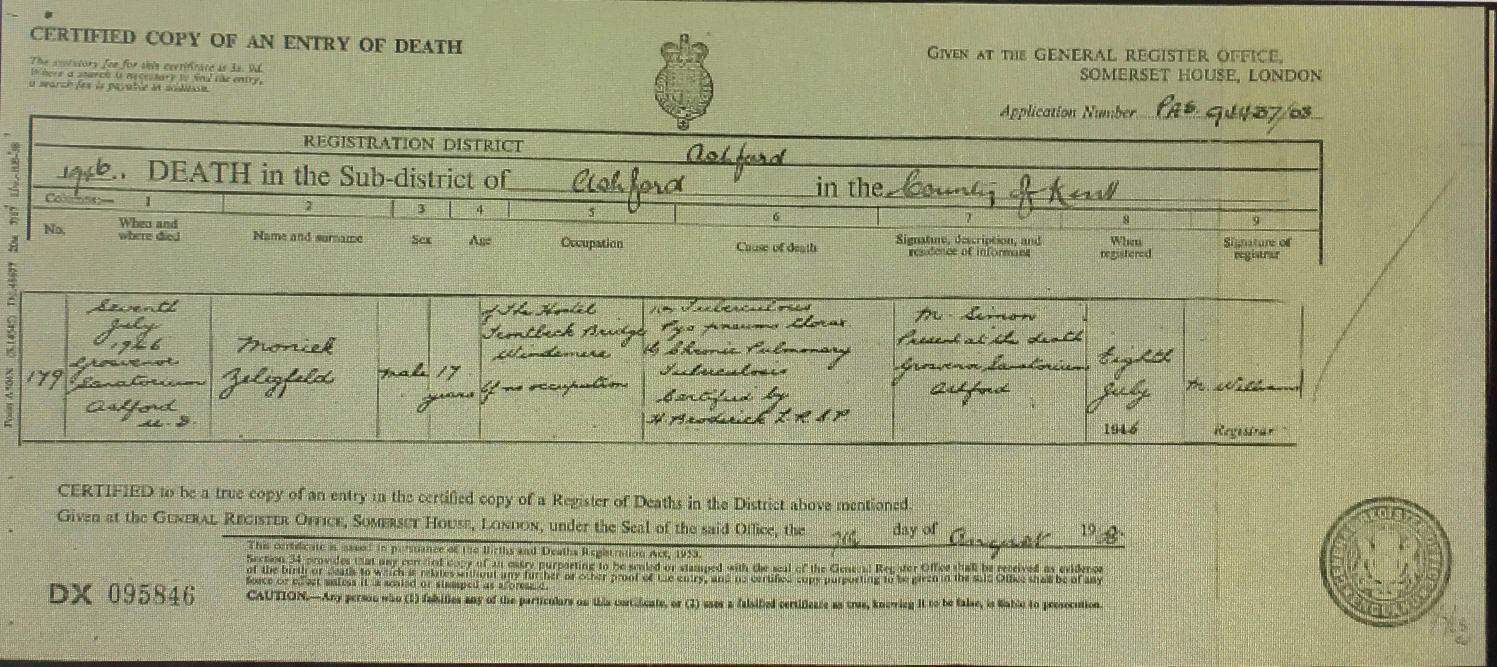 CERTIFIED COPY OF AN ENTRY OF DEATH
The statutory fee for this certificate is 3s. 9d.
Where a search is necessary to find the entry,
a search fee is payable in addition.
GIVEN AT THE GENERAL REGISTER OFFICE,
SOMERSET HOUSE, LONDON
Application Number PAS.
REGISTRATION DISTRICT Ashford
1946. DEATH in the Sub-district of Ashford in the County of Kent
Columns:— 1 2 3 4 5 6 7 8 9
No. When and where died Name and surname Sex Age Occupation Cause of death Signature, description, and residence of informant When registered Signature of registrar
179
Seventh
July
1946
Grosvenor
Sanatorium
Ashford
U.D.
Moniek
Zeligfeld
male
17
years
of The Hostel
Troutbeck Bridge
Windemere
Of no occupation
Tuberculous
Pyo pneumo thorax
Chronic Pulmonary
Tuberculosis
Certified by
H. Broderick L.R.C.P.
M. Simon
Present at the death
Grosvenor Sanatorium
Ashford
Eighth
July
1946
M. Williams
Registrar
CERTIFIED to be a true copy of an entry in the certified copy of a Register of Deaths in the District above mentioned.
Given at the GENERAL REGISTER OFFICE, SOMERSET HOUSE, LONDON, under the Seal of the said Office, the 7th day of August 1968
This certificate is issued in pursuance of the Births and Deaths Registration Act, 1953.
Section 34 provides that any certified copy of an entry purporting to be sealed or stamped with the seal of the General Register Office shall be received as evidence
of the birth or death to which it relates without any further or other proof of the entry, and no certified copy purporting to be given in the said Office shall be of any
force or effect unless it is sealed or stamped as aforesaid.
CAUTION.—Any person who (1) falsifies any of the particulars on this certificate, or (2) uses a falsified certificate as true, knowing it to be false, is liable to prosecution.
DX 095846